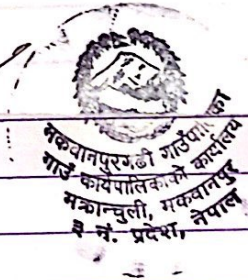 मकवानपुरगढी गाउँपालिका
गाउँ कार्यपालिकाको कार्यालय
मक्रान्चुली, मकवानपुर
३ नं. प्रदेश, नेपाल